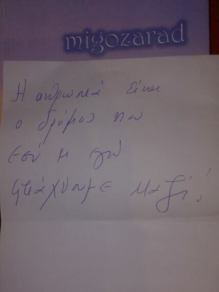 migozarad
Η ανθρωπιά είναι
ο δρόμος που
εσύ κ εγώ
φτιάχνουμε μαζί!